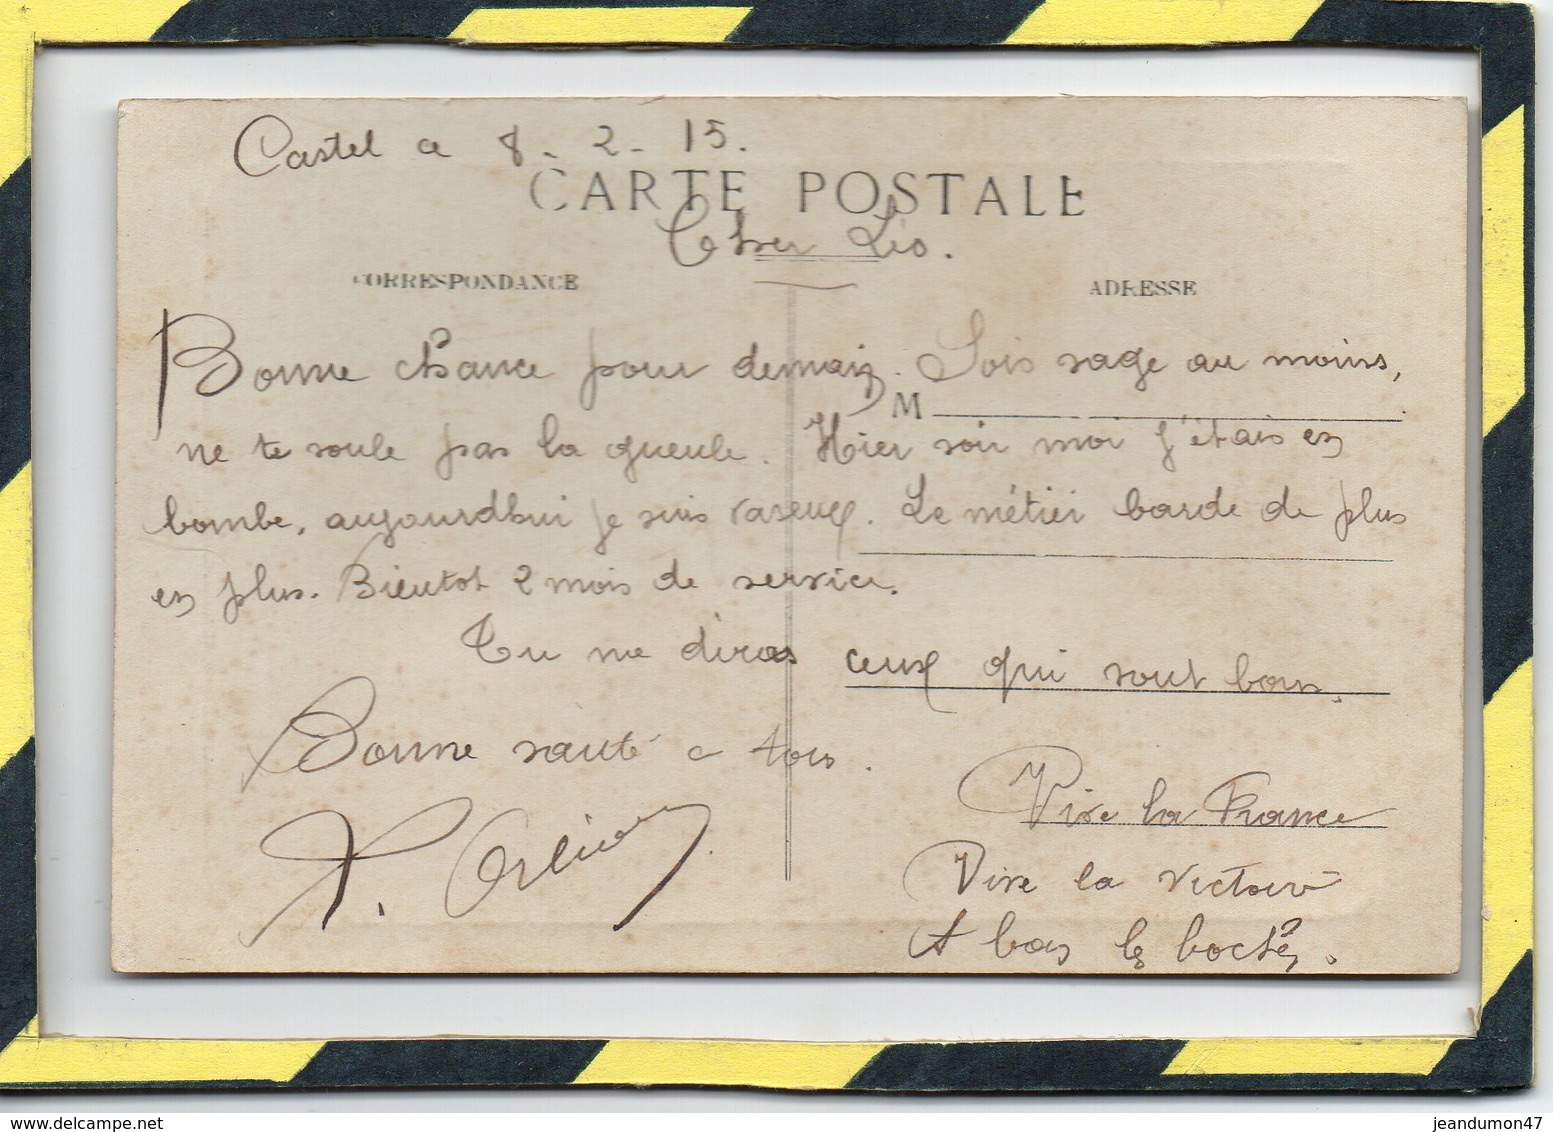 Castel ce 8-2-15.
CARTE POSTALE
Cher Léo.
CORRESPONDANCE
ADRESSE
Bonne chance pour demain. Sois sage au moins,
M
ne te soule pas la gueule. Hier soir moi j'étais en
bombe, aujourdhui je suis vaseux. Le métier barde de plus
en plus. Bientot 2 mois de service.
Tu me diras ceux qui sont bons.
Bonne santé a tous.
Vive la France
Vive la victoire
A bas les boches.
www.delcampe.net
jeandumon47